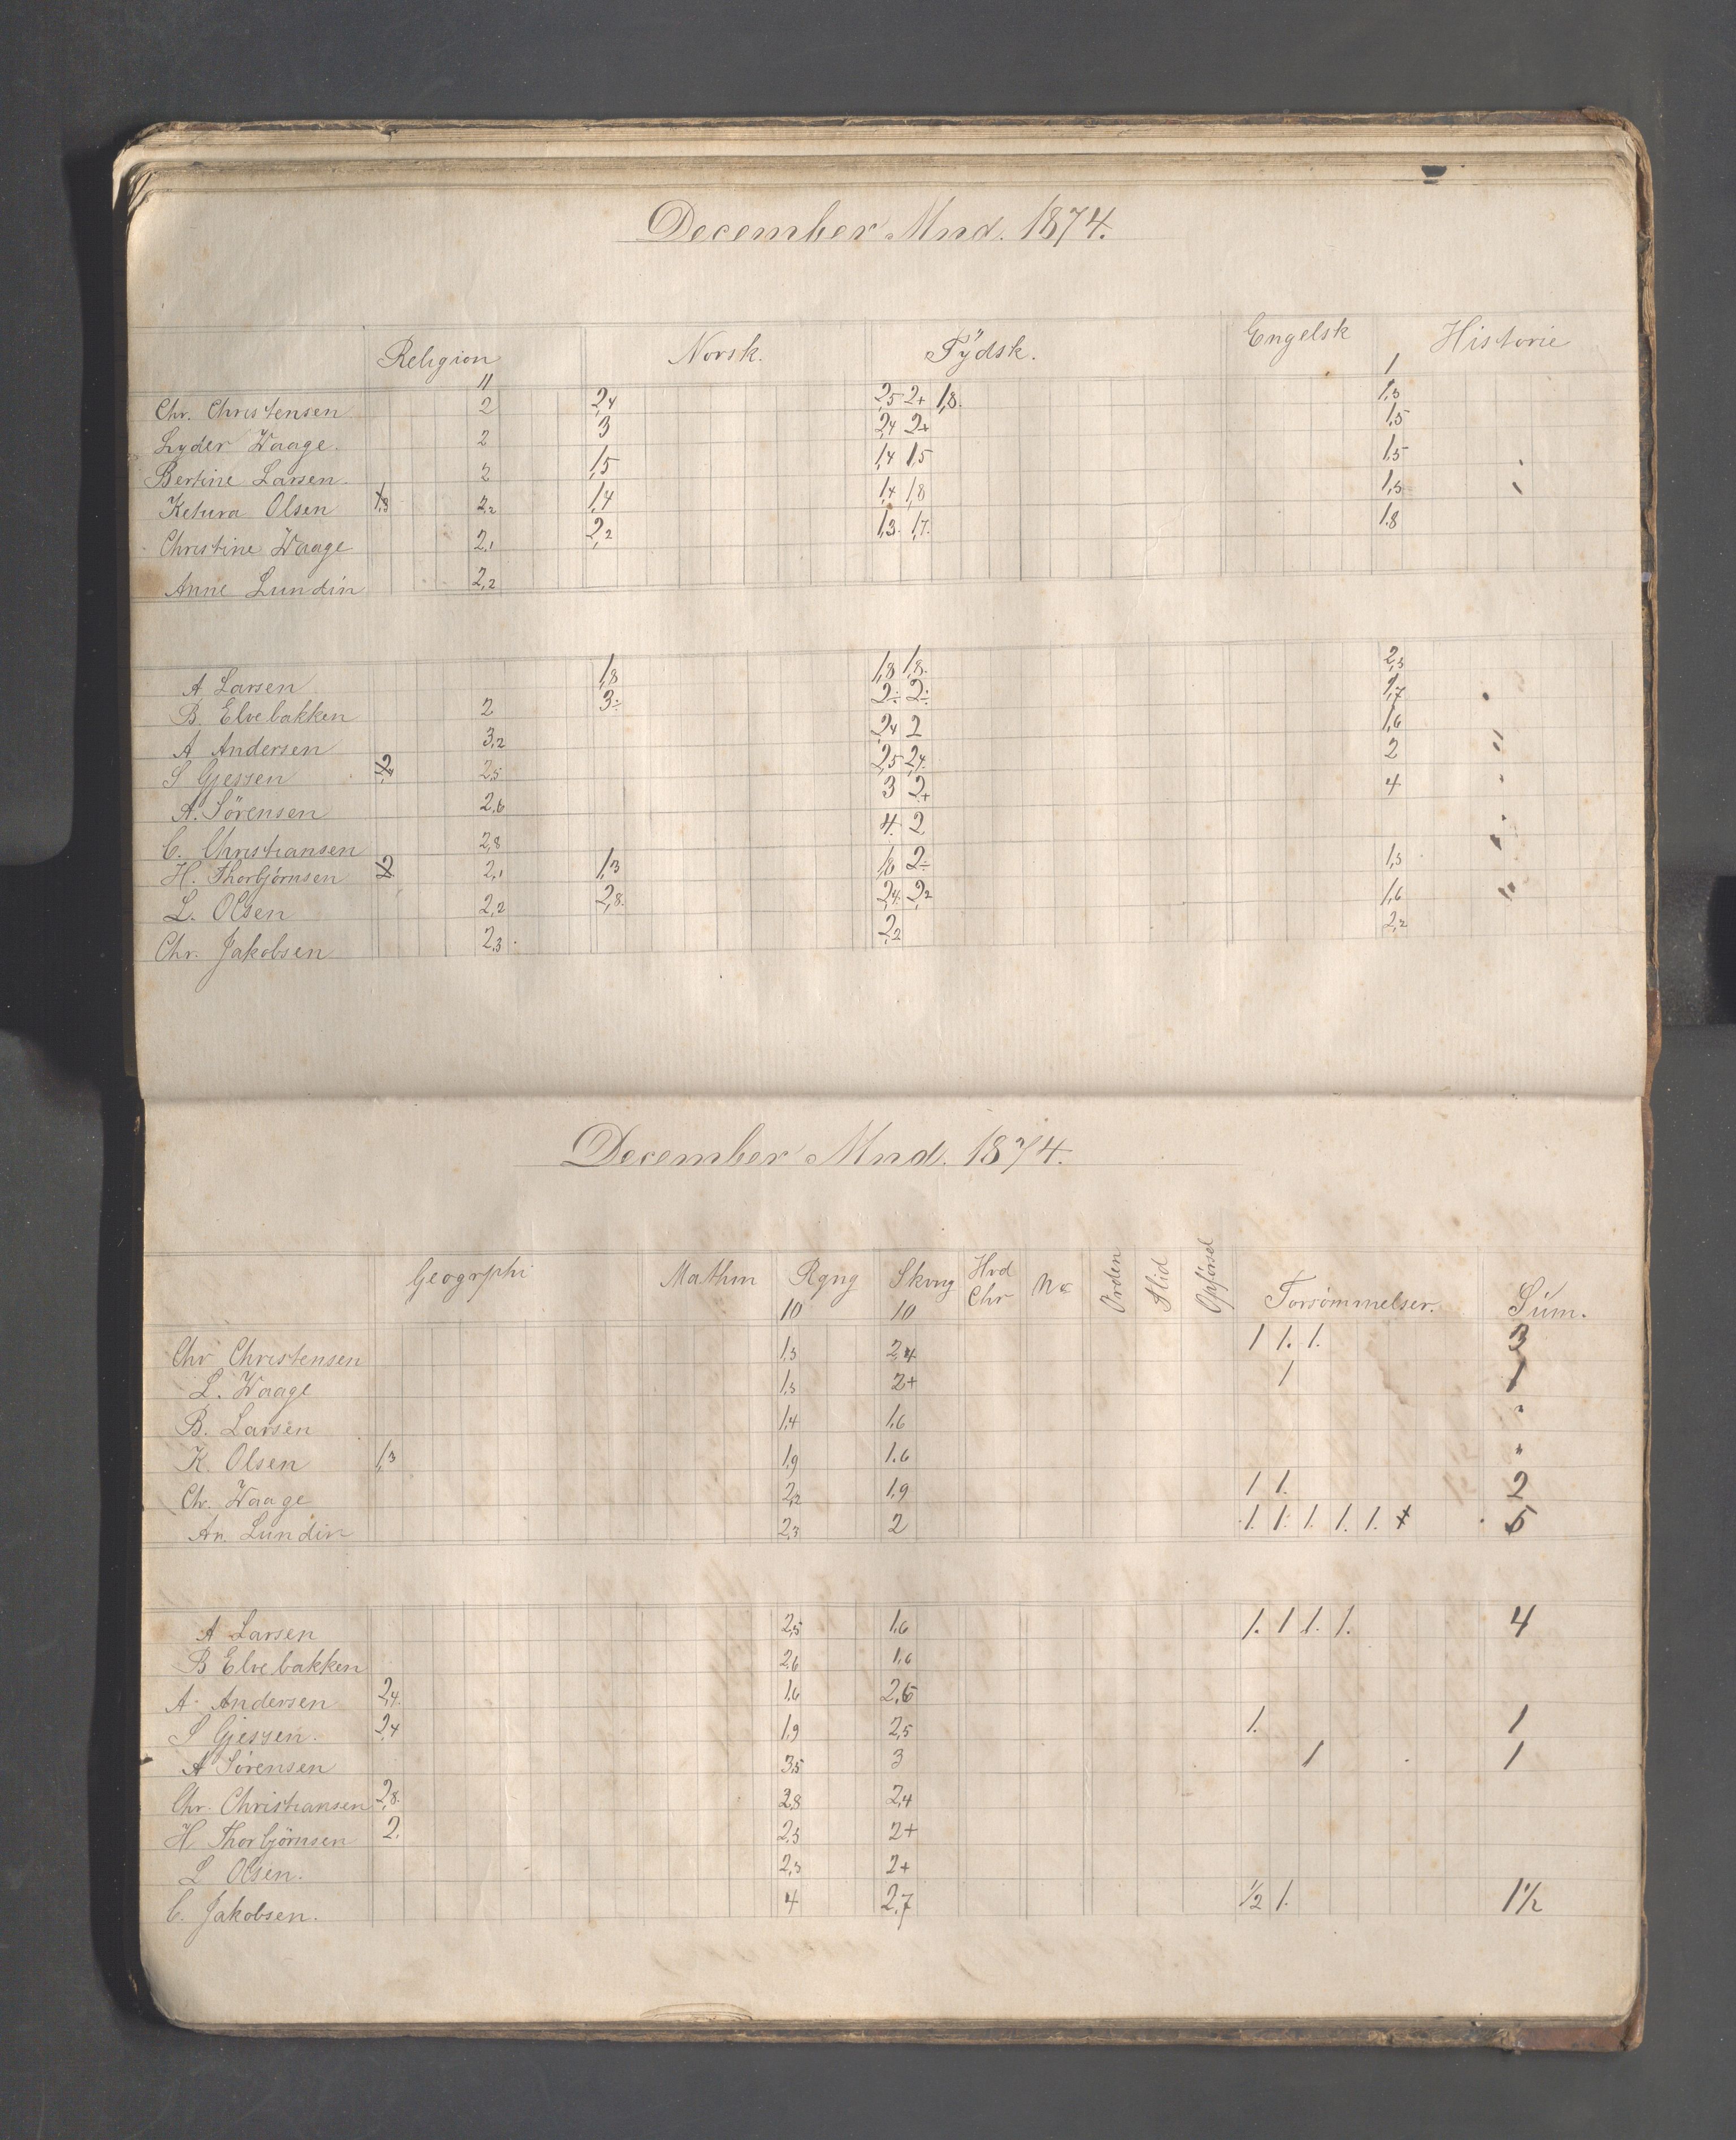 December Mnd. 1874.
Religion Norsk. Tÿdsk. Engelsk Historie
11 1
Chr. Christensen 2 2,4 2,5 2+ 1,8. 1,3
Lyder Waage. 2 3 2,4 2+ 1,5
Bertine Larsen. 2 1,5 1,4 1,5 1,5
Ketura Olsen 1,3 2,2 1,4 1,4 1,8 1,5
Christine Waage 2,1 2,2 1,3. 1,7. 1.8
Anne Lundin 2,2
A Larsen 1,8 1,8 1,8. 2,3
B. Elvebakken 2 3÷ 2÷ 2÷ 1,7
A Andersen 3,2 2,4 2 1,6
S Gjessen 2,5 2,5 2,4. 2 "
A. Sörensen 2,6 3 2+ 4
C. Christiansen 2,8 4. 2
H. Thorbjörnsen 2,1 1,3 1,6 2÷ 1,5
L. Olsen 2,2 2,8. 2,4. 2,2 1,6 "
Chr. Jakobsen 2,3. 2,2 2,2
December Mnd. 1874.
Geogrphi Mathm Rgng Skvng Hvd Chr Orden Flid Opførsel Forsömmelser. Sum.
10 10
Chr Christensen 1,5 2,4 1 1. 1. 3
L. Waage 1,5 2+ 1 1
B. Larsen 1,4 1,6 "
K. Olsen 1,3 1,9 1.6 "
Ch. Waage 2,2 1,9 1 1. 2
An. Lundin 2,3 2 1. 1. 1. 1. 1. 5
A Larsen 2,5 1,6 1. 1 1. 1. 4
B Elvebakken 2,6 1,6
A. Andersen 2,4. 1,6 2,6
S Gjessen. 2,4 1,9 2,5 1. 1
A Sörensen 3,5 3 1 1
Chr. Christiansen 2,8. 2,8 2,4
H Thorbjörnsen 2. 2,3 2+
L Olsen. 2,3 2+
C. Jakobsen. 4 2,7 1/2 1. 1 1/2